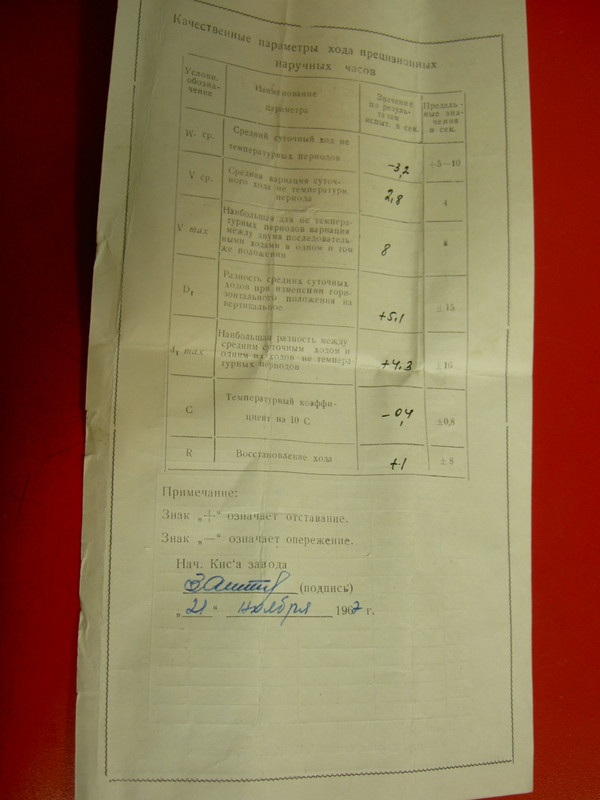 Качественные параметры хода прецизионных
наручных часов
Условн. обозна- чение
Наименование параметра
Значение по резуль- татам испыт. в сек.
Предель- ные зна- чения в сек.
W ср.
Средний суточный ход не
температурных периодов
−3,2
+5−10
V ср.
Средняя вариация суточ-
ного хода не температурн.
периода
2,8
4
V max
Наибольшая для не темпера-
турных периодов вариация
между двумя последователь-
ными ходами в одном и том
же положении
8
D₁
Разность средних суточных
ходов при изменении гори-
зонтального положения на
вертикальное
+5,1
±15
max
Наибольшая разность между
средним суточным ходом и
одним из ходов не темпера-
турных периодов
+4,3
±16
C
Температурный коэффи-
циент на 10 С
−0,4
±0,8
R
Восстановление хода
+1
±8
Примечание:
Знак „+“ означает отставание.
Знак „—“ означает опережение.
Нач. Кис'а завода
(подпись)
„21“ ноября 1967 г.